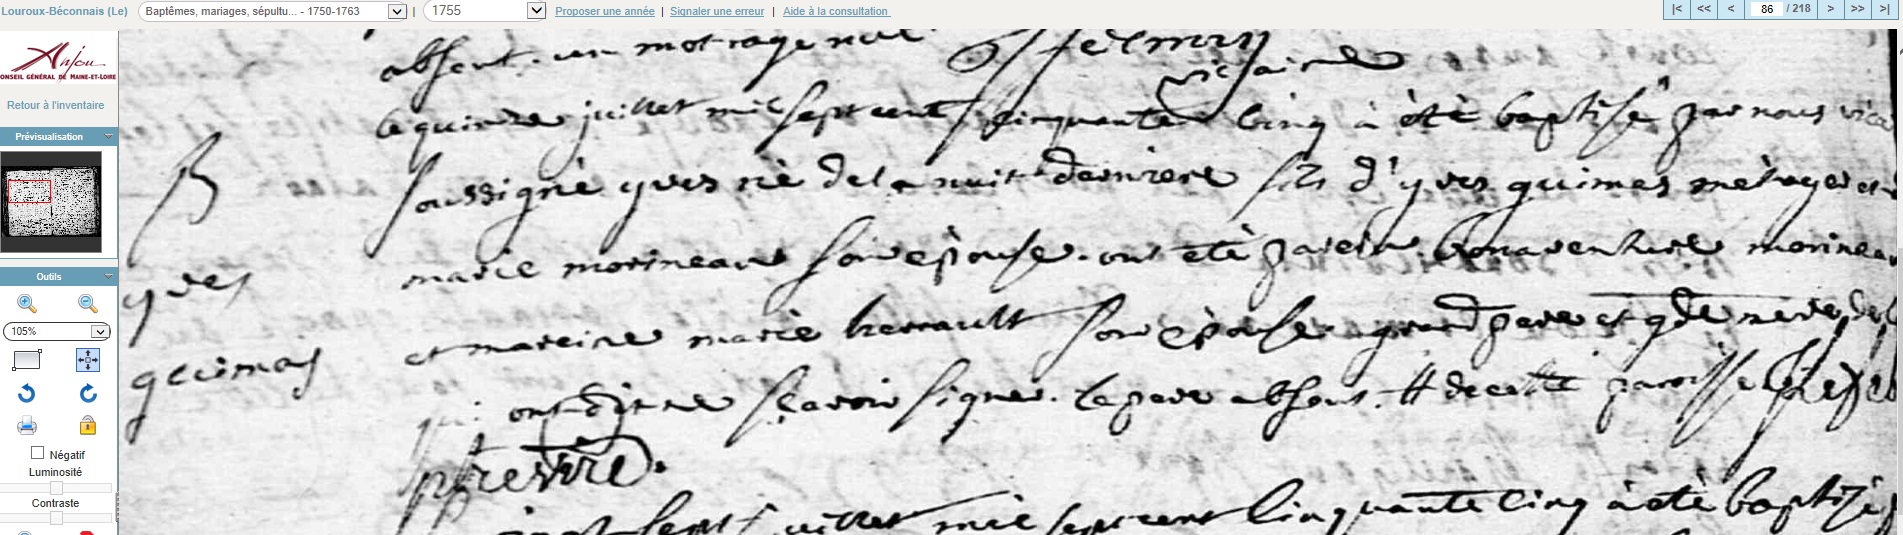 Louroux-Béconnais (Le) Baptêmes, mariages, sépultu... - 1750-1763 | 1755 Proposer une année | Signaler une erreur | Aide à la consultation |< << < 86 / 218 > >> >|
Anjou
CONSEIL GÉNÉRAL DE MAINE-ET-LOIRE
Retour à l'inventaire
Prévisualisation
Outils
105%
Négatif
Luminosité
Contraste
absent. un mot rayé nul
vicaire
le quinze juillet mil sept cent cinquante cinq à èté baptisé par nous vica
B
soussignè yves nè de la nuit derniere fils d'yves quimas metayer et
marie morineau son épouse. ont eté parein bonaventure morineau
yves
quimas
et mareine marie herrault son èpouse grand pere et gde mere de
qui ont dit ne scavoir signer. le pere absent. # de cette paroisse
prestre.
sept juillet mil sept cent cinquante cinq à oté baptizé